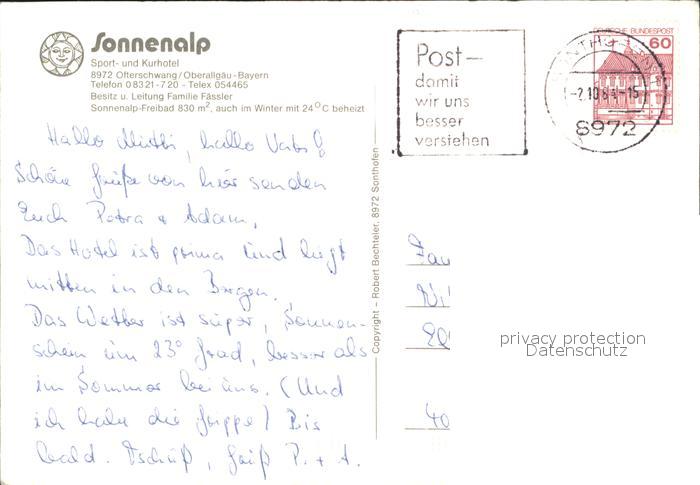 Sonnenalp
Sport- und Kurhotel
8972 Ofterschwang/Oberallgäu-Bayern
Telefon 08321-720 - Telex 054465
Besitz u. Leitung Familie Fässler
Sonnenalp-Freibad 830 m², auch im Winter mit 24°C beheizt
Hallo Mutti, hallo Vati!
Schöne Grüße von hier senden
Euch Petra + Adam.
Das Hotel ist prima und liegt
mitten in den Bergen.
Das Wetter ist super, Sonnen-
schein um 23° Grad, besser als
im Sommer bei uns. (Und
ich habe die Grippe) Bis
bald. Tschüß, Gruß P. + A.
Copyright - Robert Bechteler, 8972 Sonthofen
Post-
damit
wir uns
besser
verstehen
DEUTSCHE BUNDESPOST
60
-2.10.8
-15
8972
40
privacy protection
Datenschutz